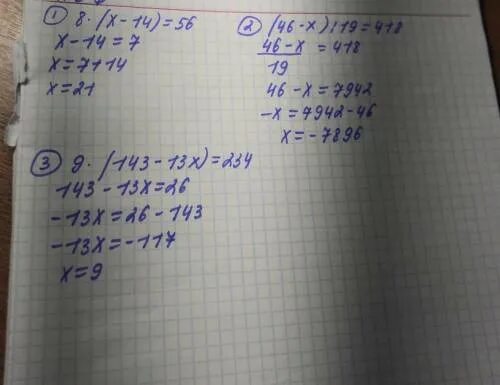 ① 8·(x-14)=56
x-14=7
x=7+14
x=21
② (46-x):19=418
46-x = 418
19
46-x=7942
-x=7942-46
x=-7896
③ 9·(143-13x)=234
143-13x=26
-13x=26-143
-13x=-117
x=9